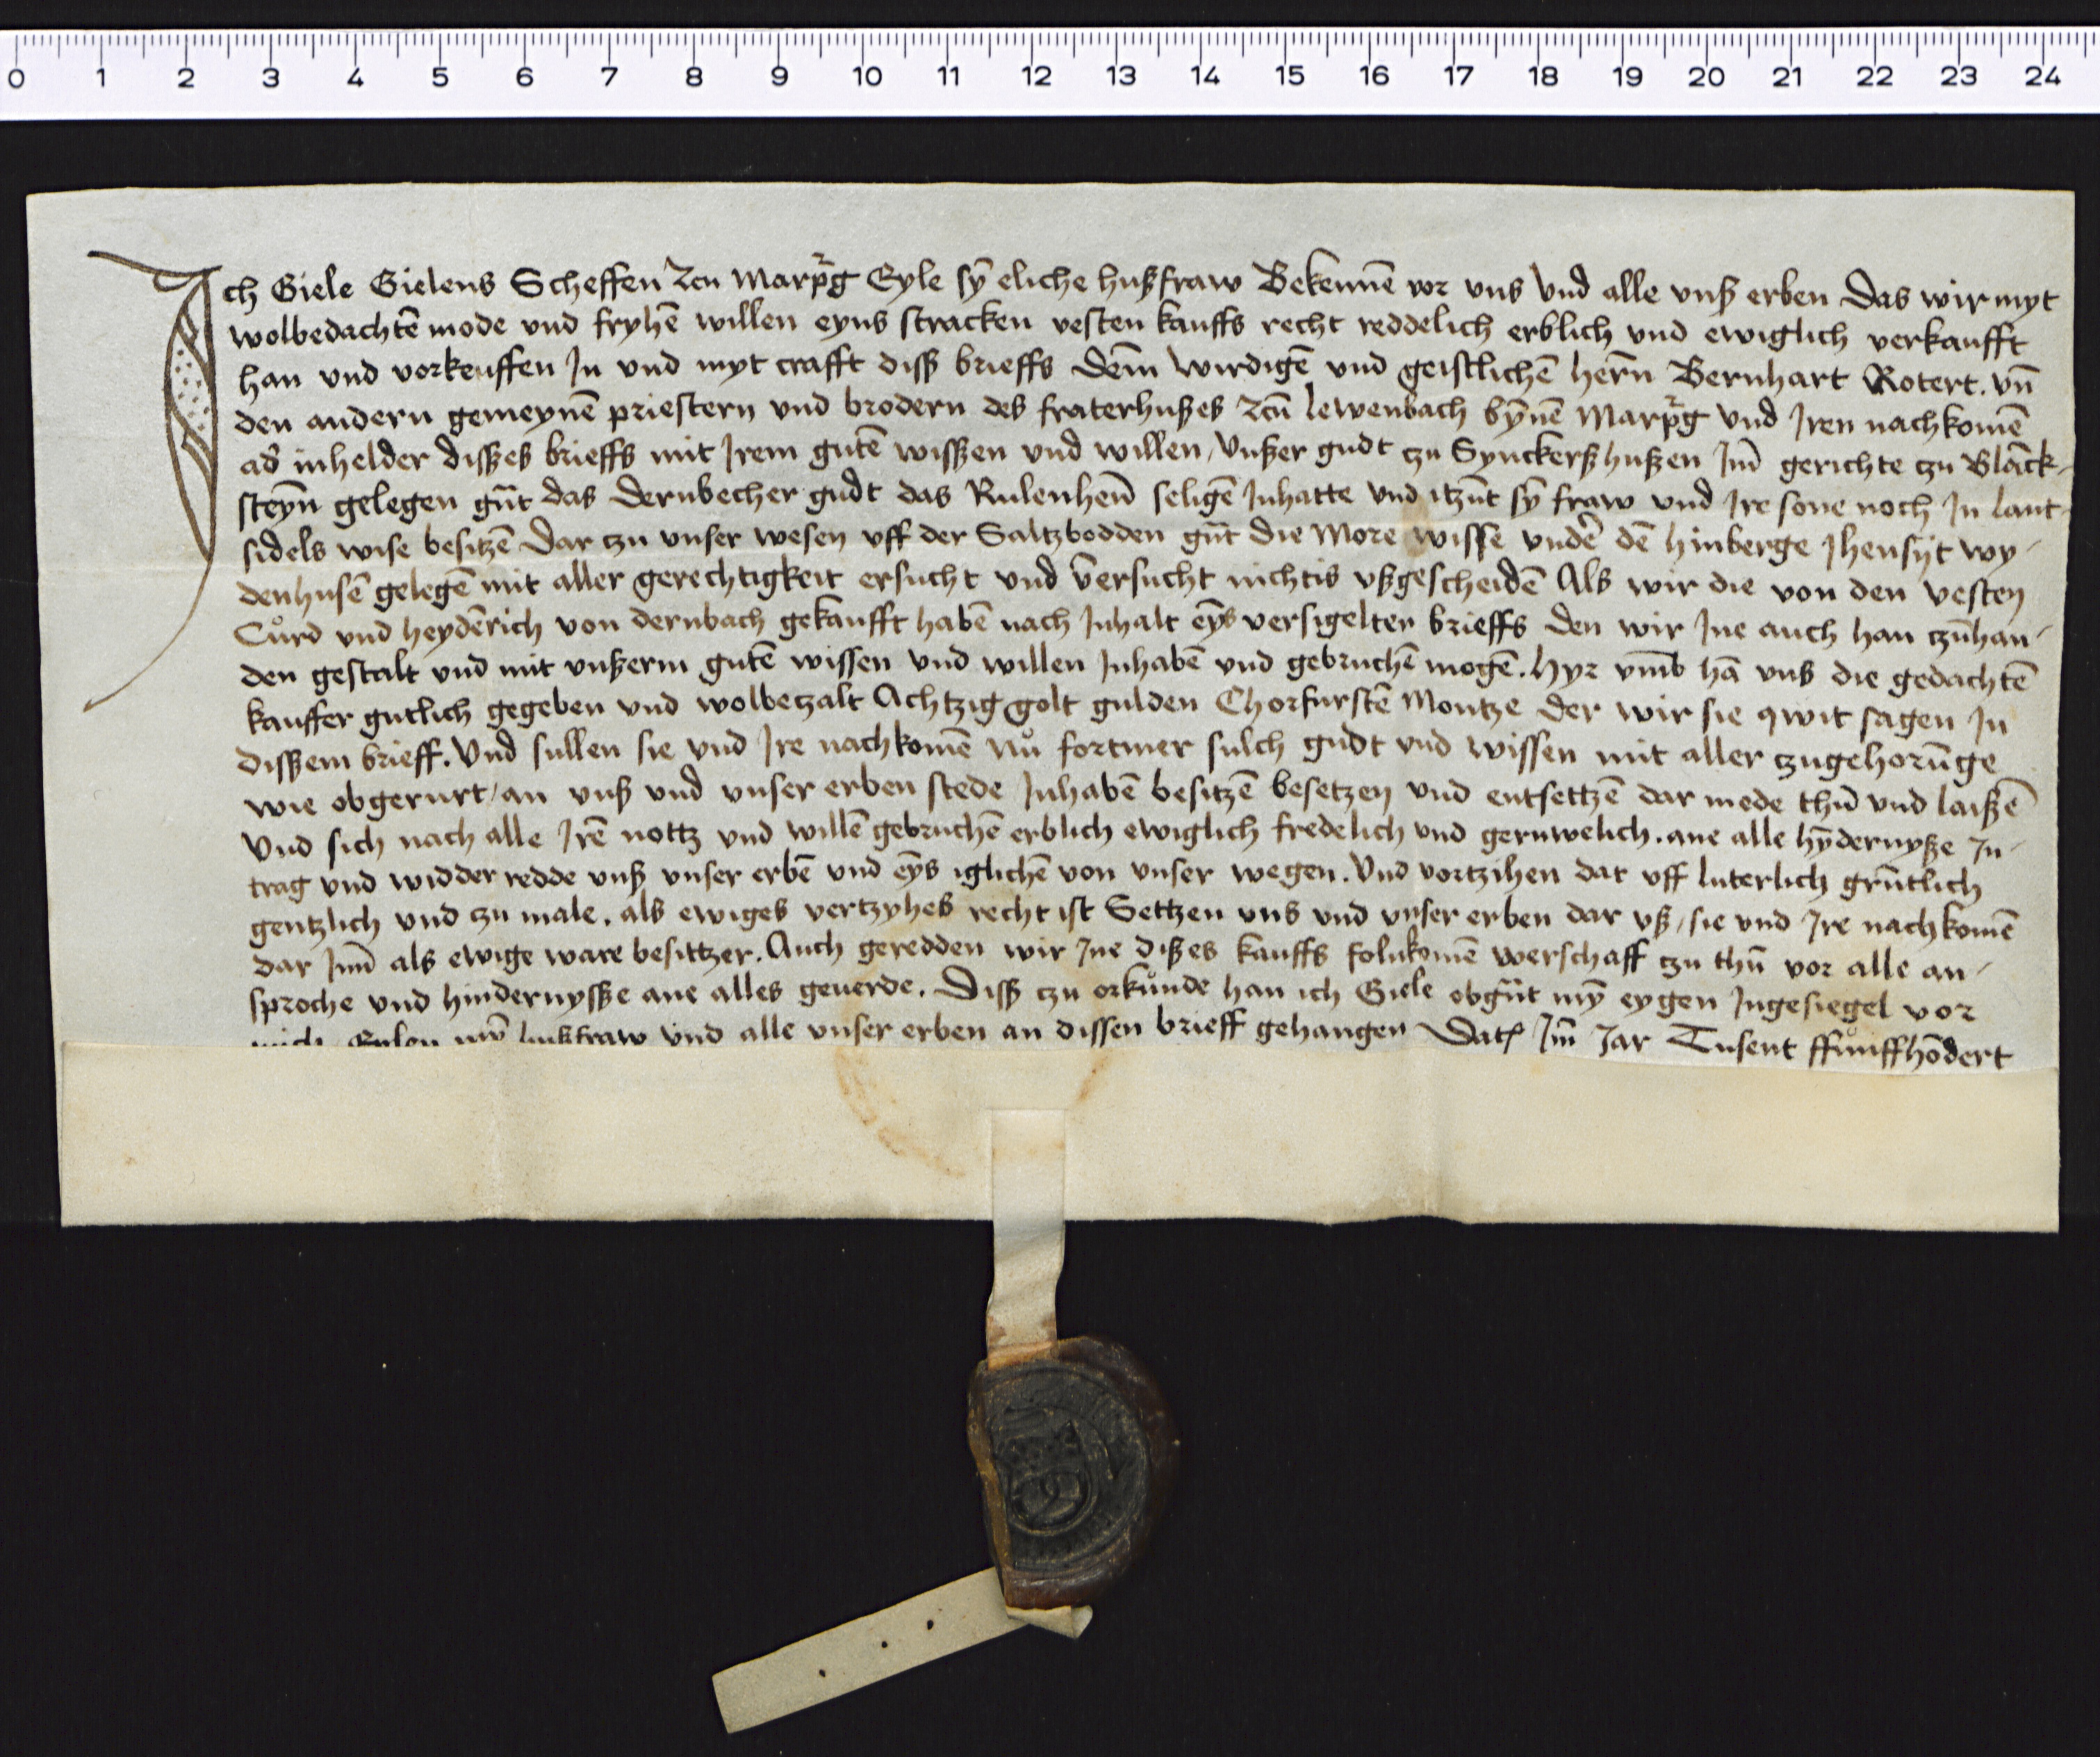 0 1 2 3 4 5 6 7 8 9 10 11 12 13 14 15 16 17 18 19 20 21 22 23 24
Ich Giele Gielens Scheffen zcu Marpg Eyle sȳ eliche hußfraw Bekennē vor vns vnd alle vnß erben Das wir myt
wolbedachtē mode vnd fryhē willen eyns stracken vesten kauffs recht reddelich erblich vnd ewiglich verkaufft
han vnd vorkeuffen In vnd myt crafft diß brieffs Dem̄ wirdigē vnd geistlichē hern̄ Bernhart Rotert. vn̄
den andern gemeynē priestern vnd brodern des fraterhußes zcū lewenbach bȳnē Marpg vnd Iren nachkomē
ad inhelder dißes brieffs mit Irem gutē wißen vnd willen, vnßer gudt zu Synckerßhußen Im̄ gerichte zu Blāck-
steyn̄ gelegen gn̄t das dernbecher gudt das Rulenhen̄ seligē Inhatte vnd itzūt sȳ fraw vnd Ire sone noch In lant-
sidels wise besitzē Dar zu vnser wesen vff der Saltzbodden gn̄t die More wisse vndē dē hinberge Jhensijt wy-
denhusē gelegē mit aller gerechtigkeit ersucht vnd v̄ersucht nichtis vßgescheidē Als wir die von den vesten
Cůrd vnd heydērich von dernbach gekaufft habē nach Inhalt eȳs versigelten brieffs den wir Ine auch han zūhan-
den gestalt vnd mit vnßerm gutē wissen vnd willen Inhabē vnd gebruchē mogē. Hyr vm̄b hā vns die gedachtē
kauffer gutlich gegeben vnd wolbezalt Achtzig golt gulden Chorfurstē Montze der wir sie qwit sagen In
dißem brieff. Vnd sullen sie vnd Ire nachkomē nů fortmer sulch gudt vnd wissen mit aller zugehorūge
wie obgerurt, an vnß vnd vnser erben stede Inhabē besitzē besetzen vnd entsettzē dar mede thū vnd laißē
Vnd sich nach alle Irē nottz vnd willē gebruchē erblich ewiglich fredelich vnd geruwelich. ane alle hȳdernyße In-
trag vnd widder redde vnß vnser erbē vnd eȳs iglichē von vnser wegen. Vnd vortzihen dar vff luterlich grūtlich
gentzlich vnd zu male. als ewiges vertzyhes recht ist Settzen vns vnd vnser erben dar vß, sie vnd Ire nachkomē
dar Inn̄ als ewige ware besittzer. Auch geredden wir Ine dißes kauffs folnkomē werschaff zu thū vor alle an-
sproche vnd hindernysße ane alles geuerde. Diß zu orkůnde han ich Giele obgn̄t mȳ eygen Ingesiegel vor
mich Eylen mȳ hußfraw vnd alle vnser erben an dissen brieff gehangen Dat Im̄ Jar Tusent ffůnffhōdert